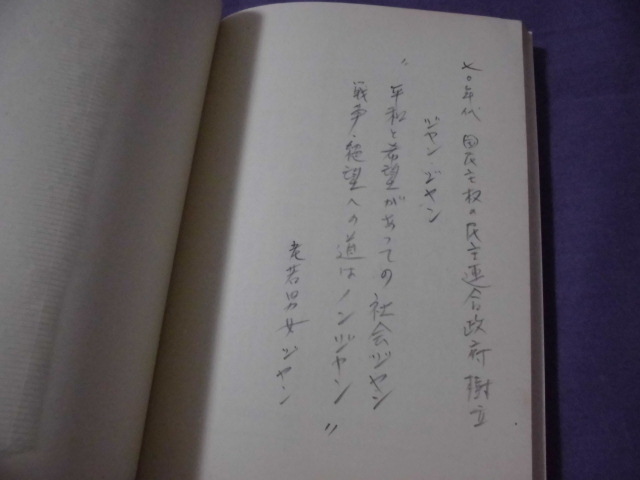 七〇年代 国民主权の民主連合政府樹立
ジャン・ジャン
〝平和と希望があっての社会ジャン
戦争・絶望への道はノンジャン〟
老若男女ジャン